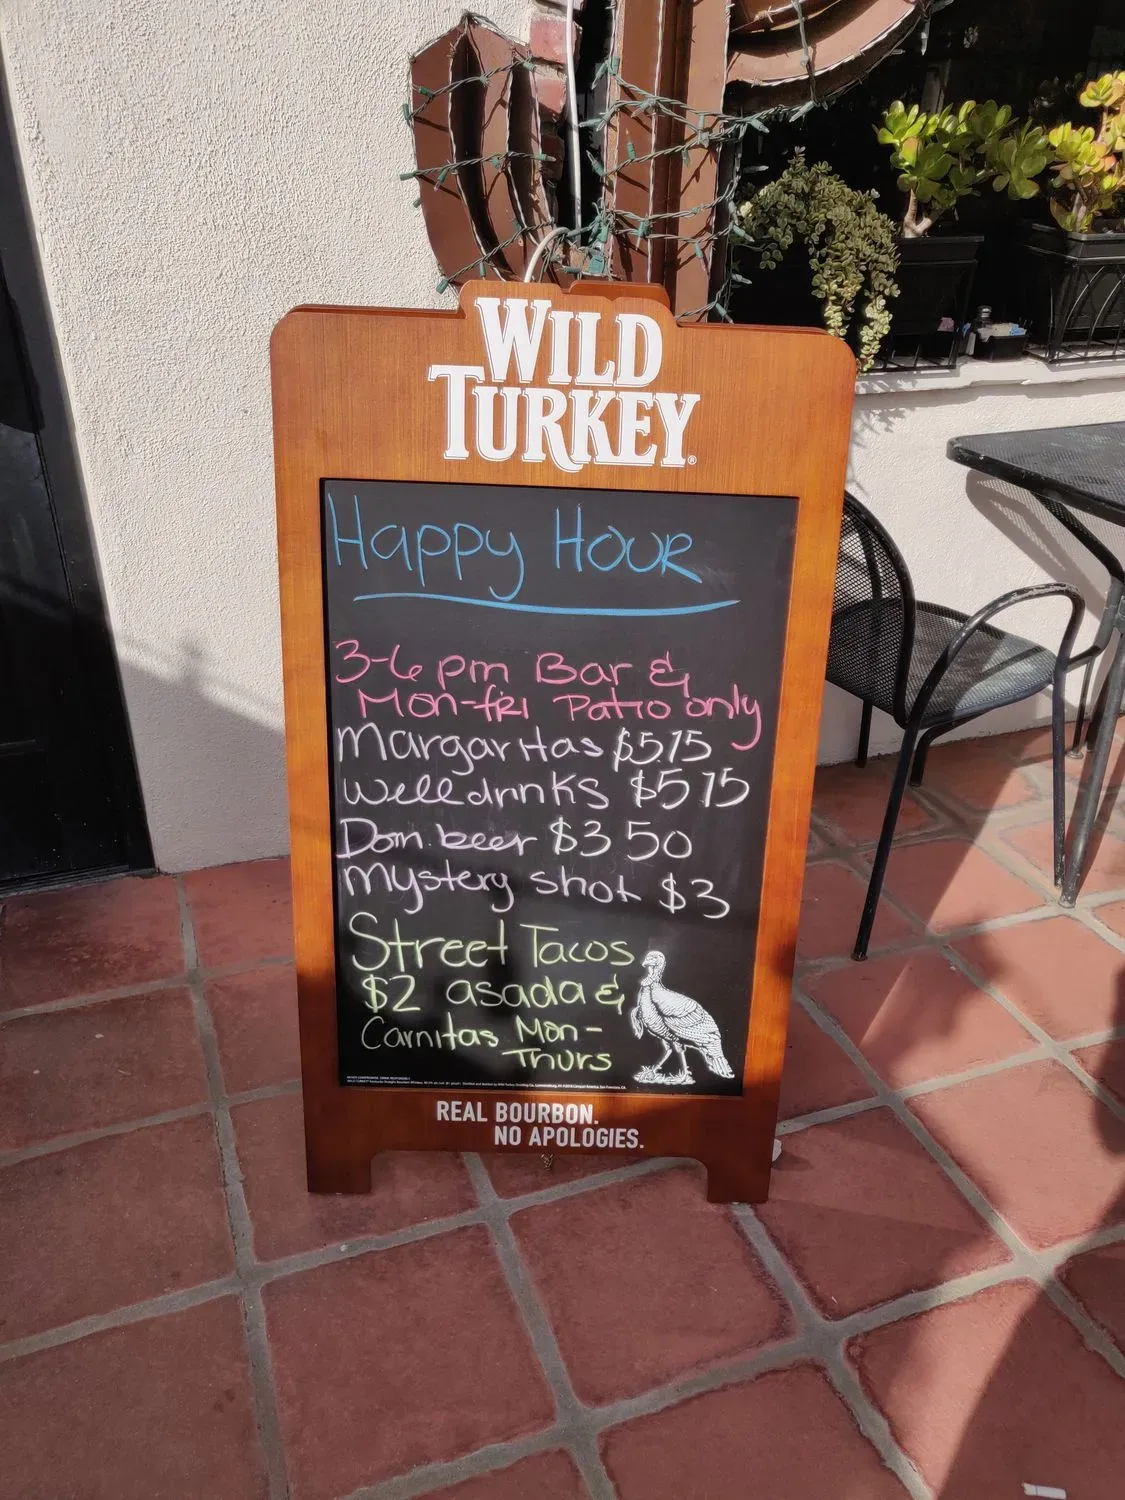 WILD
TURKEY
Happy Hour
3-6 pm Bar &
Mon-fri Patio only
Margaritas $5.75
Well drinks $5 75
Dom. beer $3 50
Mystery shot $3
Street Tacos
$2 asada &
Carnitas Mon-
Thurs
REAL BOURBON.
NO APOLOGIES.